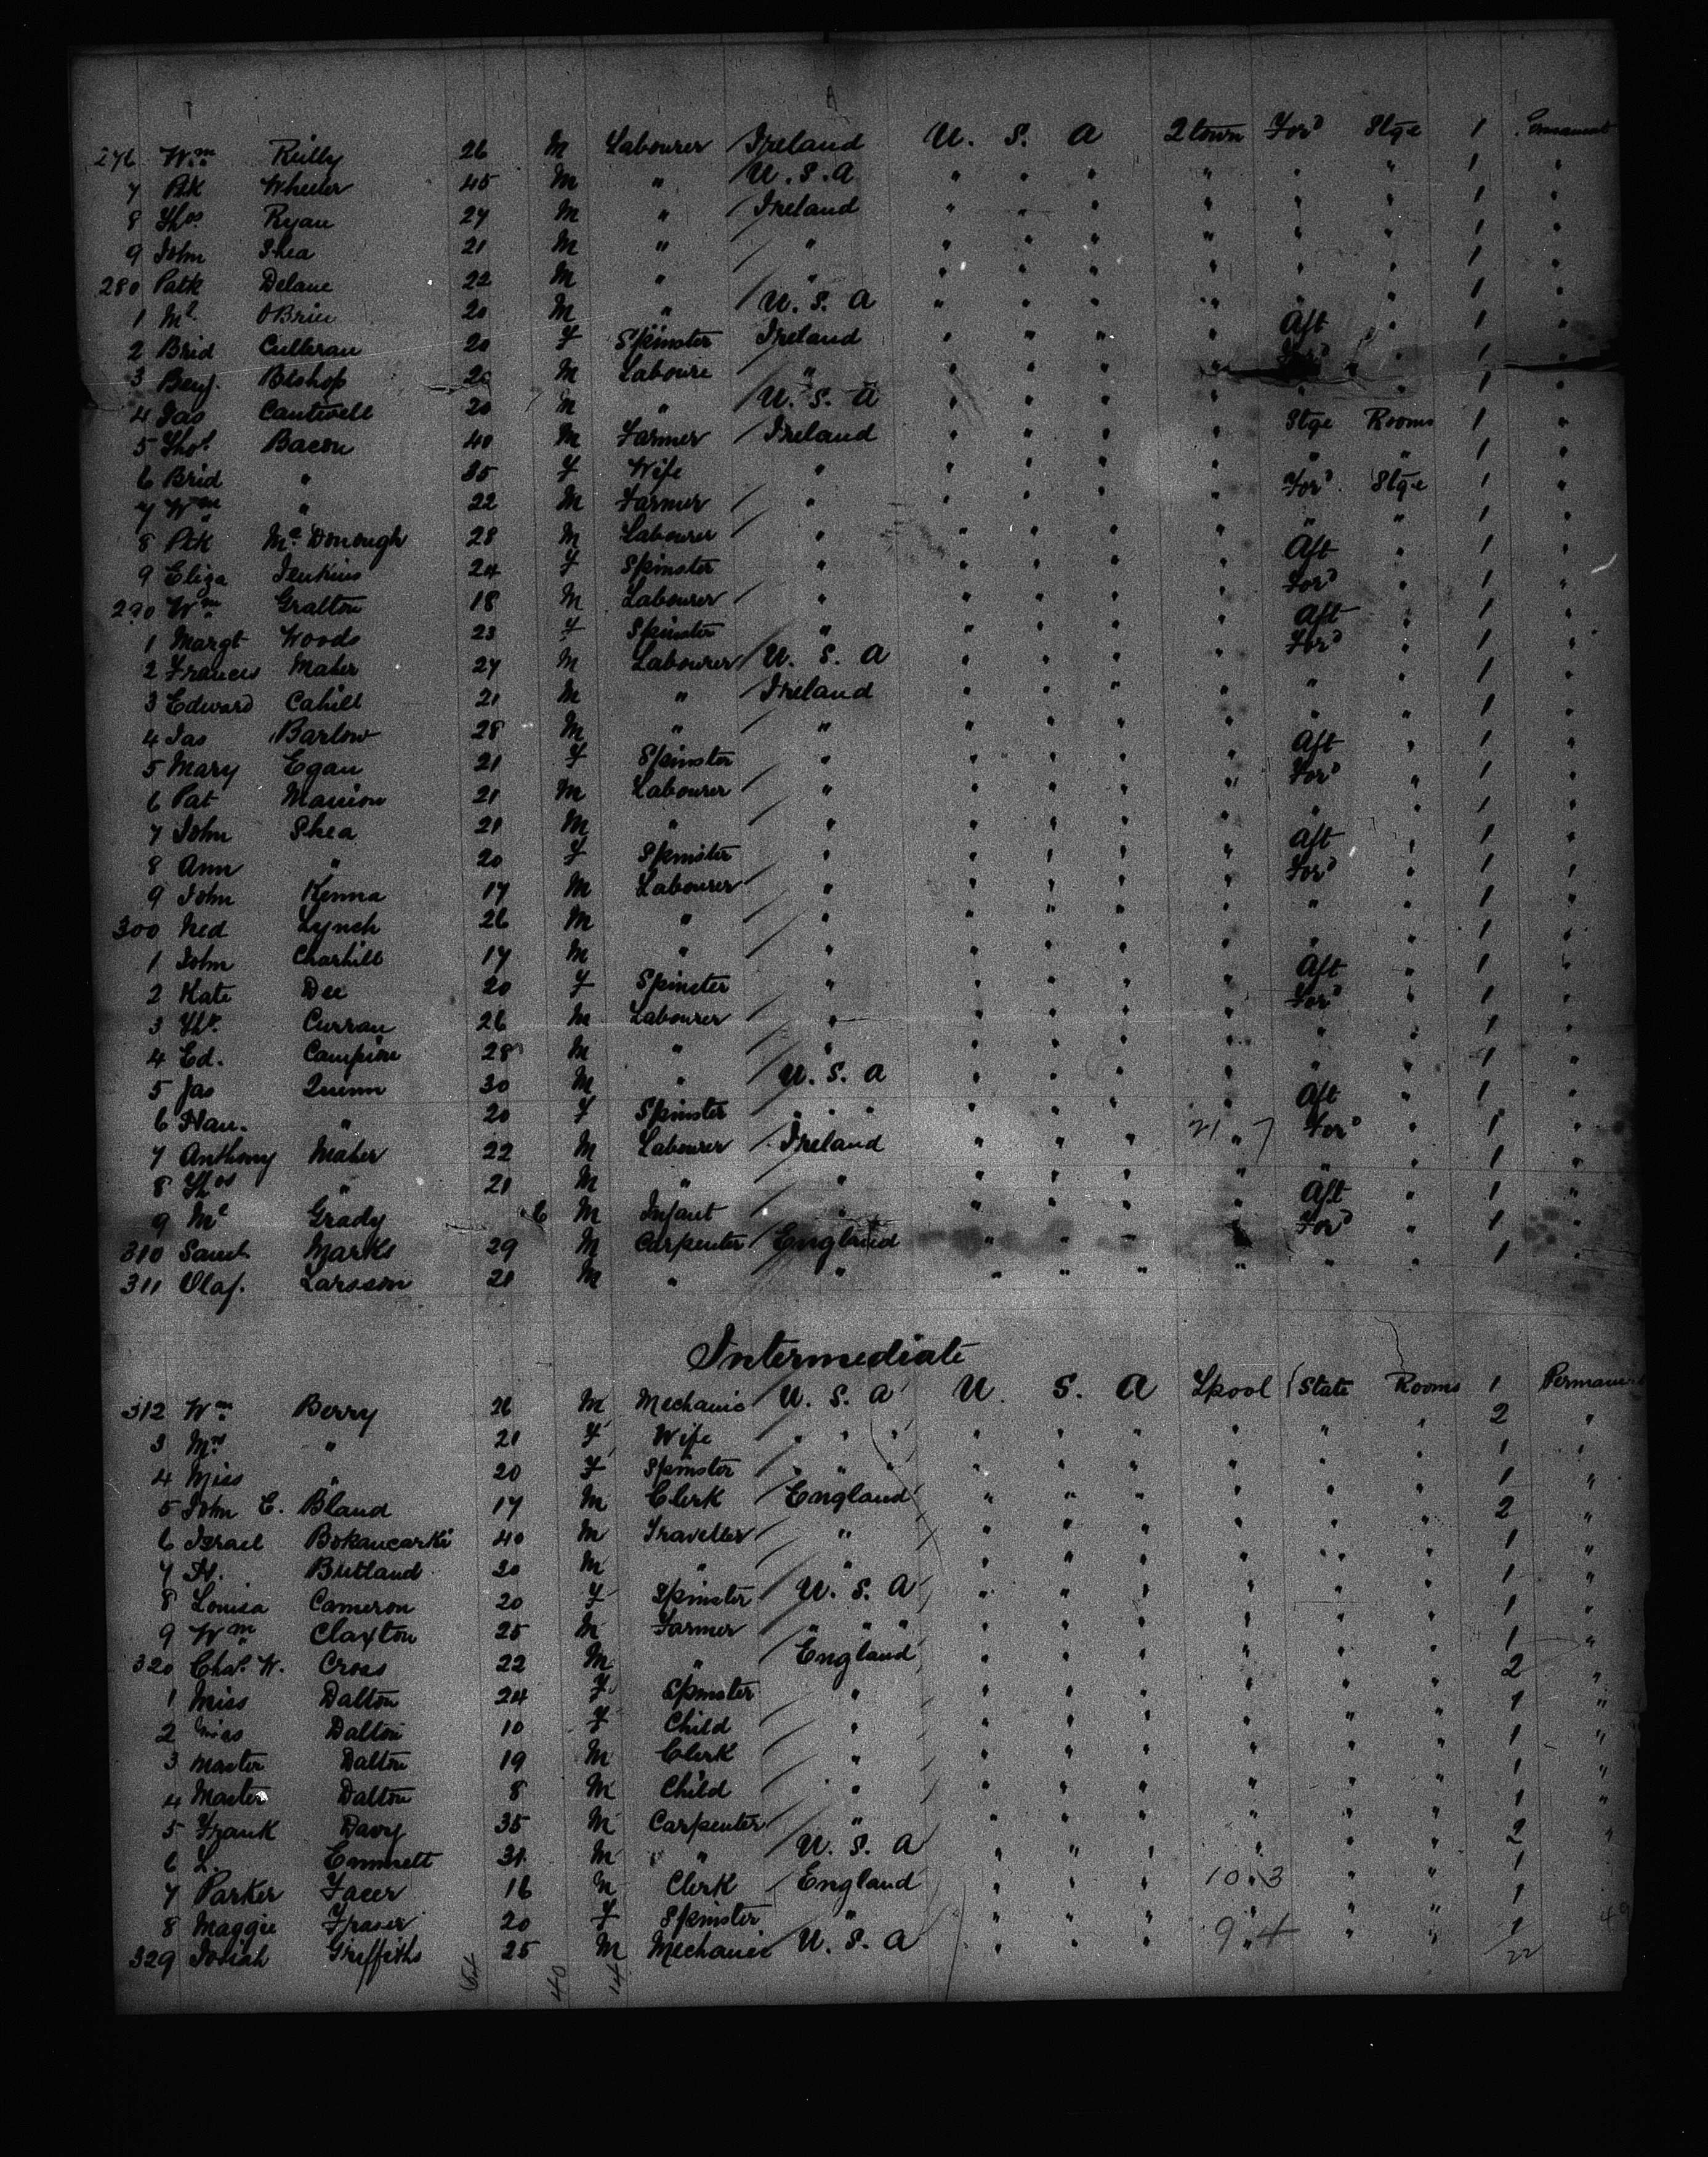 276 Wm Reilly 26 M Labourer Ireland U. S. A 2town Ford Stge 1 Permanent
7 Pak Wheeler 45 M " U.S.A " " " " " " 1 "
8 Thos Ryan 27 M " Ireland " " " " " " 1 "
9 John Shea 21 M " " " " " " " " 1 "
280 Patk Delane 22 M " " " " " " " " 1 "
1 Ml OBrien 20 M " U. S. A " " " " " " 1 "
2 Brid Culleran 20 F Spinster Ireland " " " " Aft " 1 "
3 Benj. Bishop 20 M Laboure " " " " " Ford " 1 "
4 Jas Cantwell 20 M " U. S. A " " " " " " 1 "
5 Thos. Bacon 40 M Farmer Ireland " " " " Stge Rooms 1 "
6 Brid " 35 F Wife " " " " " " " 1 "
7 Wm " 22 M Farmer " " " " " Ford Stge 1 "
8 Pak McDonough 28 M Labourer " " " " " " " 1 "
9 Eliza Jenkins 24 F Spinster " " " " " Aft " 1 "
290 Wm Gralton 18 M Labourer " " " " " Ford " 1 "
1 Margt Woods 23 F Spinster " " " " " Aft " 1 "
2 Frances Maher 27 M Labourer U. S. A " " " " Ford " 1 "
3 Edward Cahill 21 M " Ireland " " " " " " 1 "
4 Jas Barlow 28 M " " " " " " " " 1 "
5 Mary Egan 21 F Spinster " " " " " Aft " 1 "
6 Pat Manion 21 M Labourer " " " " " Ford " 1 "
7 John Shea 21 M " " " " " " " " 1 "
8 Ann " 20 F Spinster " " " " " Aft " 1 "
9 John Kenna 17 M Labourer " " " " " Ford " 1 "
300 Ned Lynch 26 M " " " " " " " " 1 "
1 John Charhill 17 M " " " " " " " " 1 "
2 Kate Dee 20 F Spinster " " " " " Aft " 1 "
3 Thos. Curran 26 M Labourer " " " " " Ford " 1 "
4 Ed. Campion 28 M " " " " " " " " 1 "
5 Jas Quinn 30 M " U. S. A " " " " " " 1 "
6 Han. " 20 F Spinster " " " " " " " Aft " 1 "
7 Anthony Maher 22 M Labourer Ireland " " " 21 " 7 Ford " 1 "
8 Thos " 21 M " " " " " " " " 1 "
9 Ml Grady 6 M Infant " " " " " Aft " 1 "
310 Saml. Marks 29 M Carpenter England " " " " Ford " 1 "
311 Olaf. Larsson 21 M " " " " " " " " 1
Intermediate
312 Wm Berry 26 M Mechanic U. S. A U. S. A Lpool State Rooms 1 Permanent
3 Mrs " 21 F Wife " " " " " " " " " 2 "
4 Miss " 20 F Spinster " " " " " " " " " 1 "
5 John E. Bland 17 M Clerk England " " " " " " 1 "
6 Israel Bokancarki 40 M Traveller " " " " " " " 2 "
7 H. Butland 20 M " " " " " " " " 1 "
8 Louisa Cameron 20 F Spinster U. S. A " " " " " " 1 "
9 Wm Claxton 25 M Farmer " " " " " " " " " 1 "
320 Chas. W. Cross 22 M " England " " " " " " 1 "
1 Miss Dalton 24 F Spinster " " " " " " " 2 "
2 Miss Dalton 10 F Child " " " " " " " 1 "
3 Master Dalton 19 M Clerk " " " " " " " 1 "
4 Master Dalton 8 M Child " " " " " " " 1 "
5 Frank Davy 35 M Carpenter " " " " " " " 1 "
6 L. Emmett 31 M " U. S. A " " " " " " 2 "
7 Parker Facer 16 M Clerk England " " " 10.3 " " 1
8 Maggie Fraser 20 F Spinster " " " " " " " 1
329 Josiah Griffiths 25 M Mechanic U. S. A " " " 9"4 " " 1
22
40 14